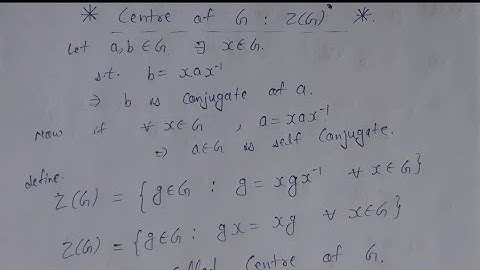 * Centre of G : Z(G) *.
Let a, b ∈ G ∃ x ∈ G.
s.t. b = xax⁻¹
⇒ b is conjugate of a.
Now if ∀ x ∈ G , a = xax⁻¹
⇒ a ∈ G is self conjugate.
define.
Z(G) = { g ∈ G : g = xgx⁻¹ ∀ x ∈ G }
Z(G) = { g ∈ G : gx = xg ∀ x ∈ G }
called Centre of G.